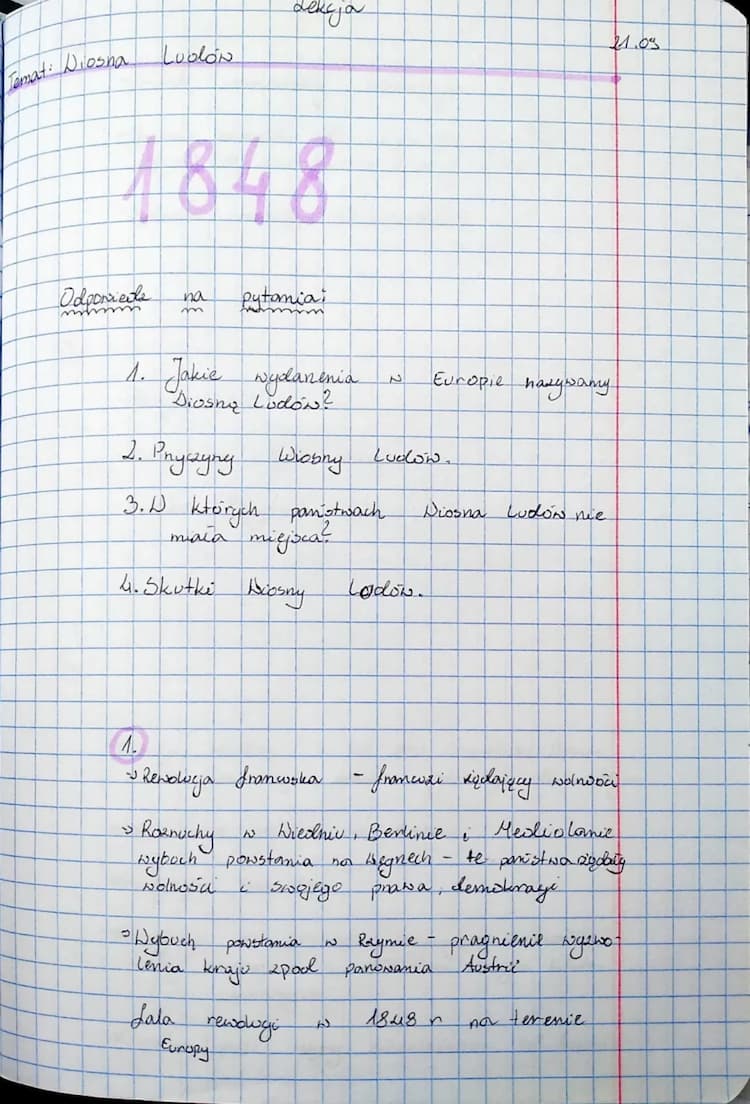 Lekcja
21.09
Temat: Wiosna Ludów
1848
Odpowiedz na pytania:
1. Jakie wydarzenia w Europie nazywamy
Wiosną Ludów?
2. Przyczyny Wiosny Ludów.
3. W których państwach Wiosna Ludów nie
miała miejsca?
4. Skutki Wiosny Ludów.
1.
Rewolucja francuska - francuzi żądający wolności
Rozruchy w Wiedniu, Berlinie i Mediolanie
wybuch powstania na Węgrzech - te państwa żądały
wolności i swojego prawa, demokracji
Wybuch powstania w Rzymie - pragnienie wyzwo-
lenia kraju zpod panowania Austrii
fala rewolucji w 1848 r na terenie
Europy